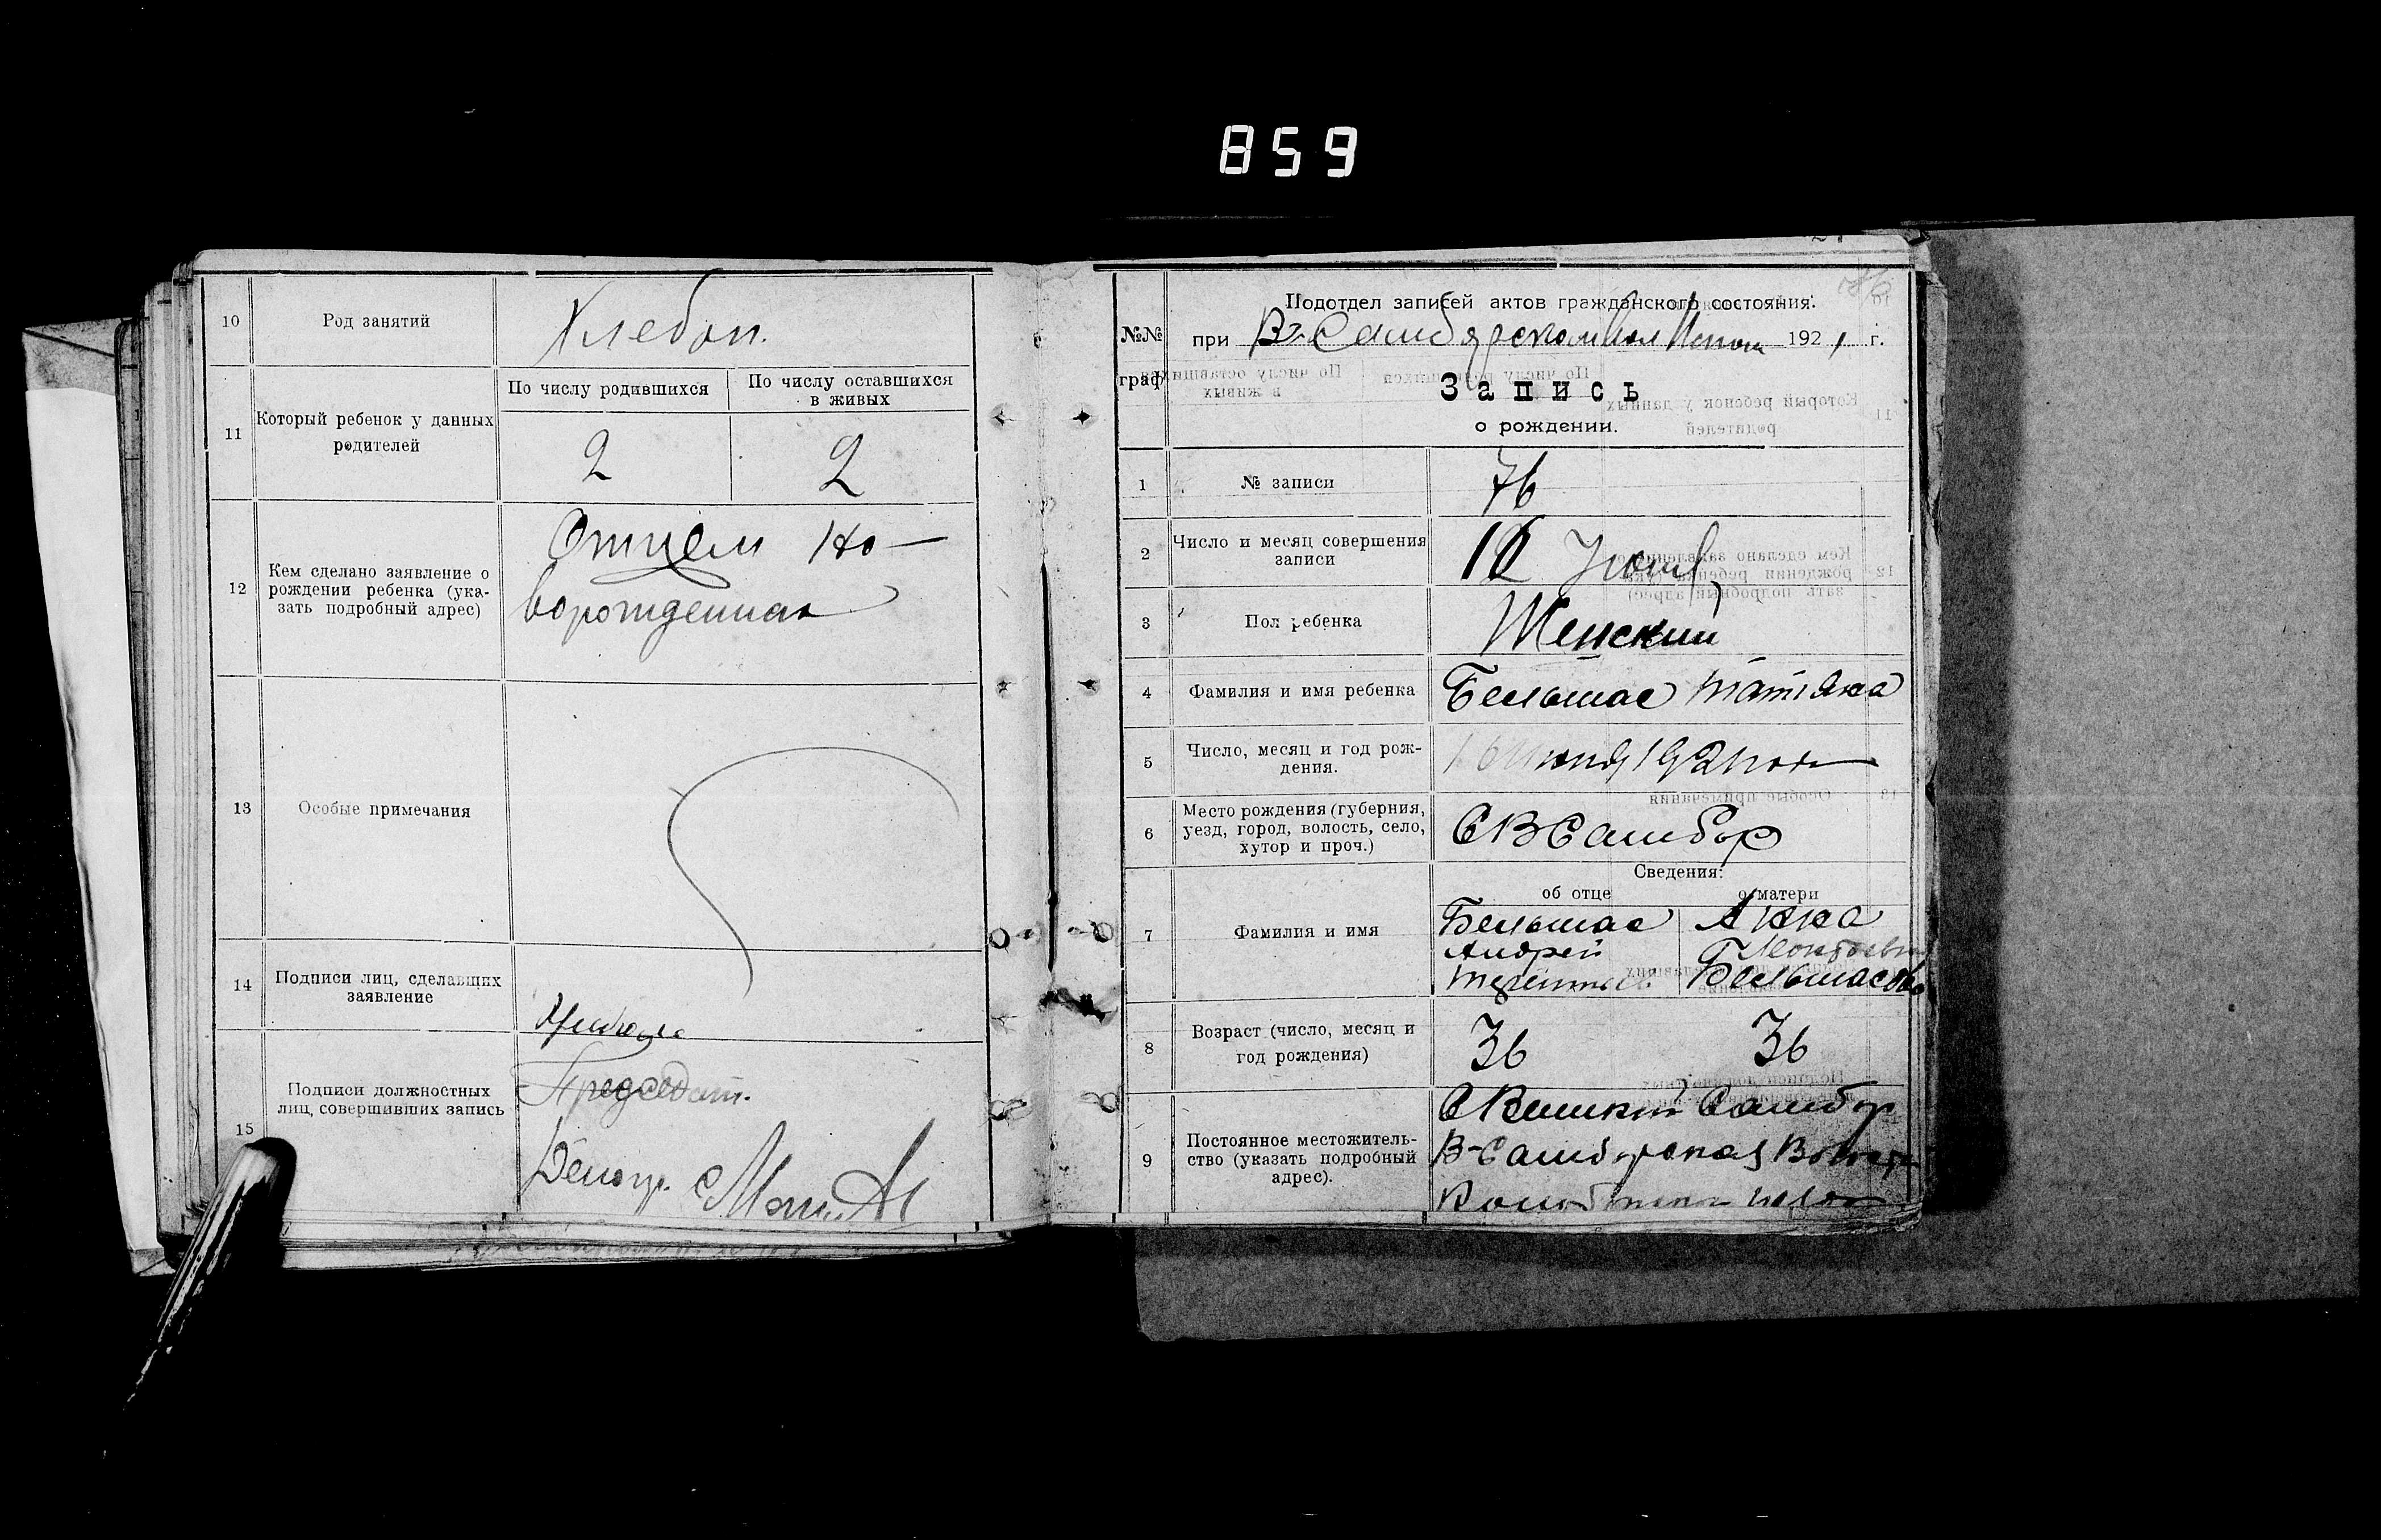 859
10
Род занятий
Хлебоп.
11
Который ребенок у данных
родителей
По числу родившихся
По числу оставшихся
в живых
2
2
12
Кем сделано заявление о
рождении ребенка (ука-
зать подробный адрес)
Отцем но-
ворожденная
13
Особые примечания
14
Подписи лиц, сделавших
заявление
15
Подписи должностных
лиц, совершивших запись
Председат.
Делопр.
№№
граф
Подотдел записей актов гражданского состояния.
при В-Самборском Вол 192 1 г.
Запись
о рождении.
1
№ записи
76
2
Число и месяц совершения
записи
3
Пол ребенка
Женский
4
Фамилия и имя ребенка
Бельмас Татіяна
5
Число, месяц и год рож-
дения.
6
Место рождения (губерния,
уезд, город, волость, село,
хутор и проч.)
С В Самбор
Сведения:
об отце
о матери
7
Фамилия и имя
Бельмас
Андрей
Анна
Бельмасова
8
Возраст (число, месяц и
год рождения)
36
36
9
Постоянное местожитель-
ство (указать подробный
адрес).
С Великий Самбор
В-Самборская